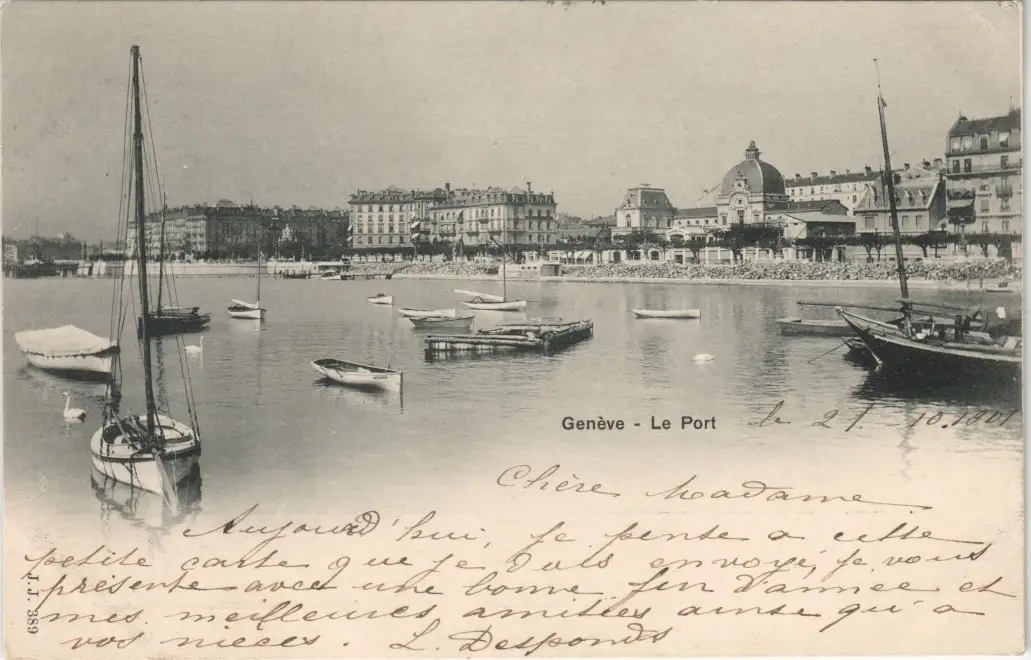 Genève - Le Port
le 27. 10. 1901
Chère Madame
Aujourd'hui, je pense a cette
petite carte que je dois envoyé, je vous
présente avec une bonne fin d'année et
mes meilleures amitiés ainsi qu'a
vos nieces. L. Desponds
J.J. 389